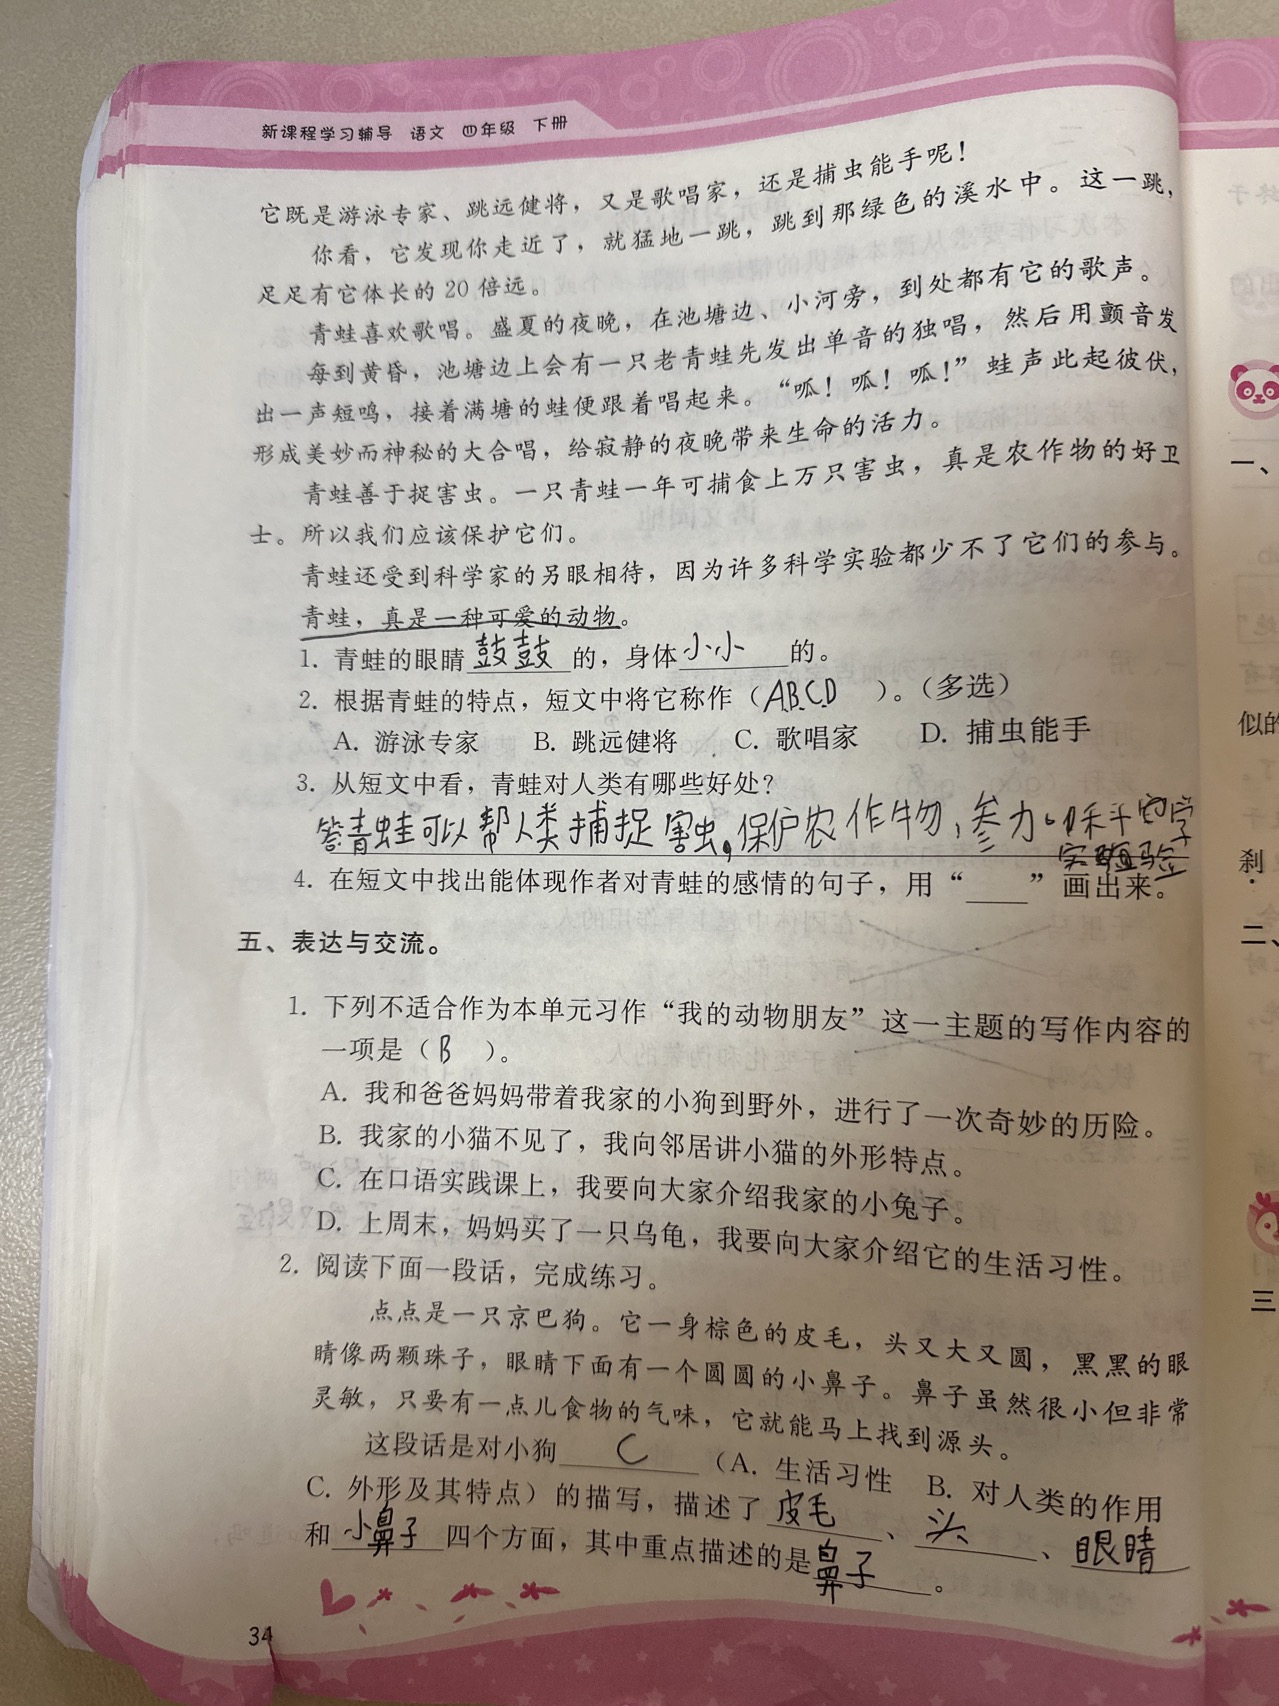 新课程学习辅导 语文 四年级 下册
它既是游泳专家、跳远健将，又是歌唱家，还是捕虫能手呢！
你看，它发现你走近了，就猛地一跳，跳到那绿色的溪水中。这一跳，
足足有它体长的 20 倍远。
青蛙喜欢歌唱。盛夏的夜晚，在池塘边、小河旁，到处都有它的歌声。
每到黄昏，池塘边上会有一只老青蛙先发出单音的独唱，然后用颤音发
出一声短鸣，接着满塘的蛙便跟着唱起来。“呱！呱！呱！”蛙声此起彼伏，
形成美妙而神秘的大合唱，给寂静的夜晚带来生命的活力。
青蛙善于捉害虫。一只青蛙一年可捕食上万只害虫，真是农作物的好卫
士。所以我们应该保护它们。
青蛙还受到科学家的另眼相待，因为许多科学实验都少不了它们的参与。
青蛙，真是一种可爱的动物。
1. 青蛙的眼睛鼓鼓的，身体小小的。
2. 根据青蛙的特点，短文中将它称作（ABCD）。（多选）
A. 游泳专家 B. 跳远健将 C. 歌唱家 D. 捕虫能手
3. 从短文中看，青蛙对人类有哪些好处？
答青蛙可以帮人类捕捉害虫，保护农作物，参力
实验
4. 在短文中找出能体现作者对青蛙的感情的句子，用“___”画出来。
五、表达与交流。
1. 下列不适合作为本单元习作“我的动物朋友”这一主题的写作内容的
一项是（B）。
A. 我和爸爸妈妈带着我家的小狗到野外，进行了一次奇妙的历险。
B. 我家的小猫不见了，我向邻居讲小猫的外形特点。
C. 在口语实践课上，我要向大家介绍我家的小兔子。
D. 上周末，妈妈买了一只乌龟，我要向大家介绍它的生活习性。
2. 阅读下面一段话，完成练习。
点点是一只京巴狗。它一身棕色的皮毛，头又大又圆，黑黑的眼
睛像两颗珠子，眼睛下面有一个圆圆的小鼻子。鼻子虽然很小但非常
灵敏，只要有一点儿食物的气味，它就能马上找到源头。
这段话是对小狗 C （A. 生活习性 B. 对人类的作用
C. 外形及其特点）的描写，描述了皮毛、头、眼睛
和小鼻子四个方面，其中重点描述的是鼻子。
34
一、
似的
刹
二、
三